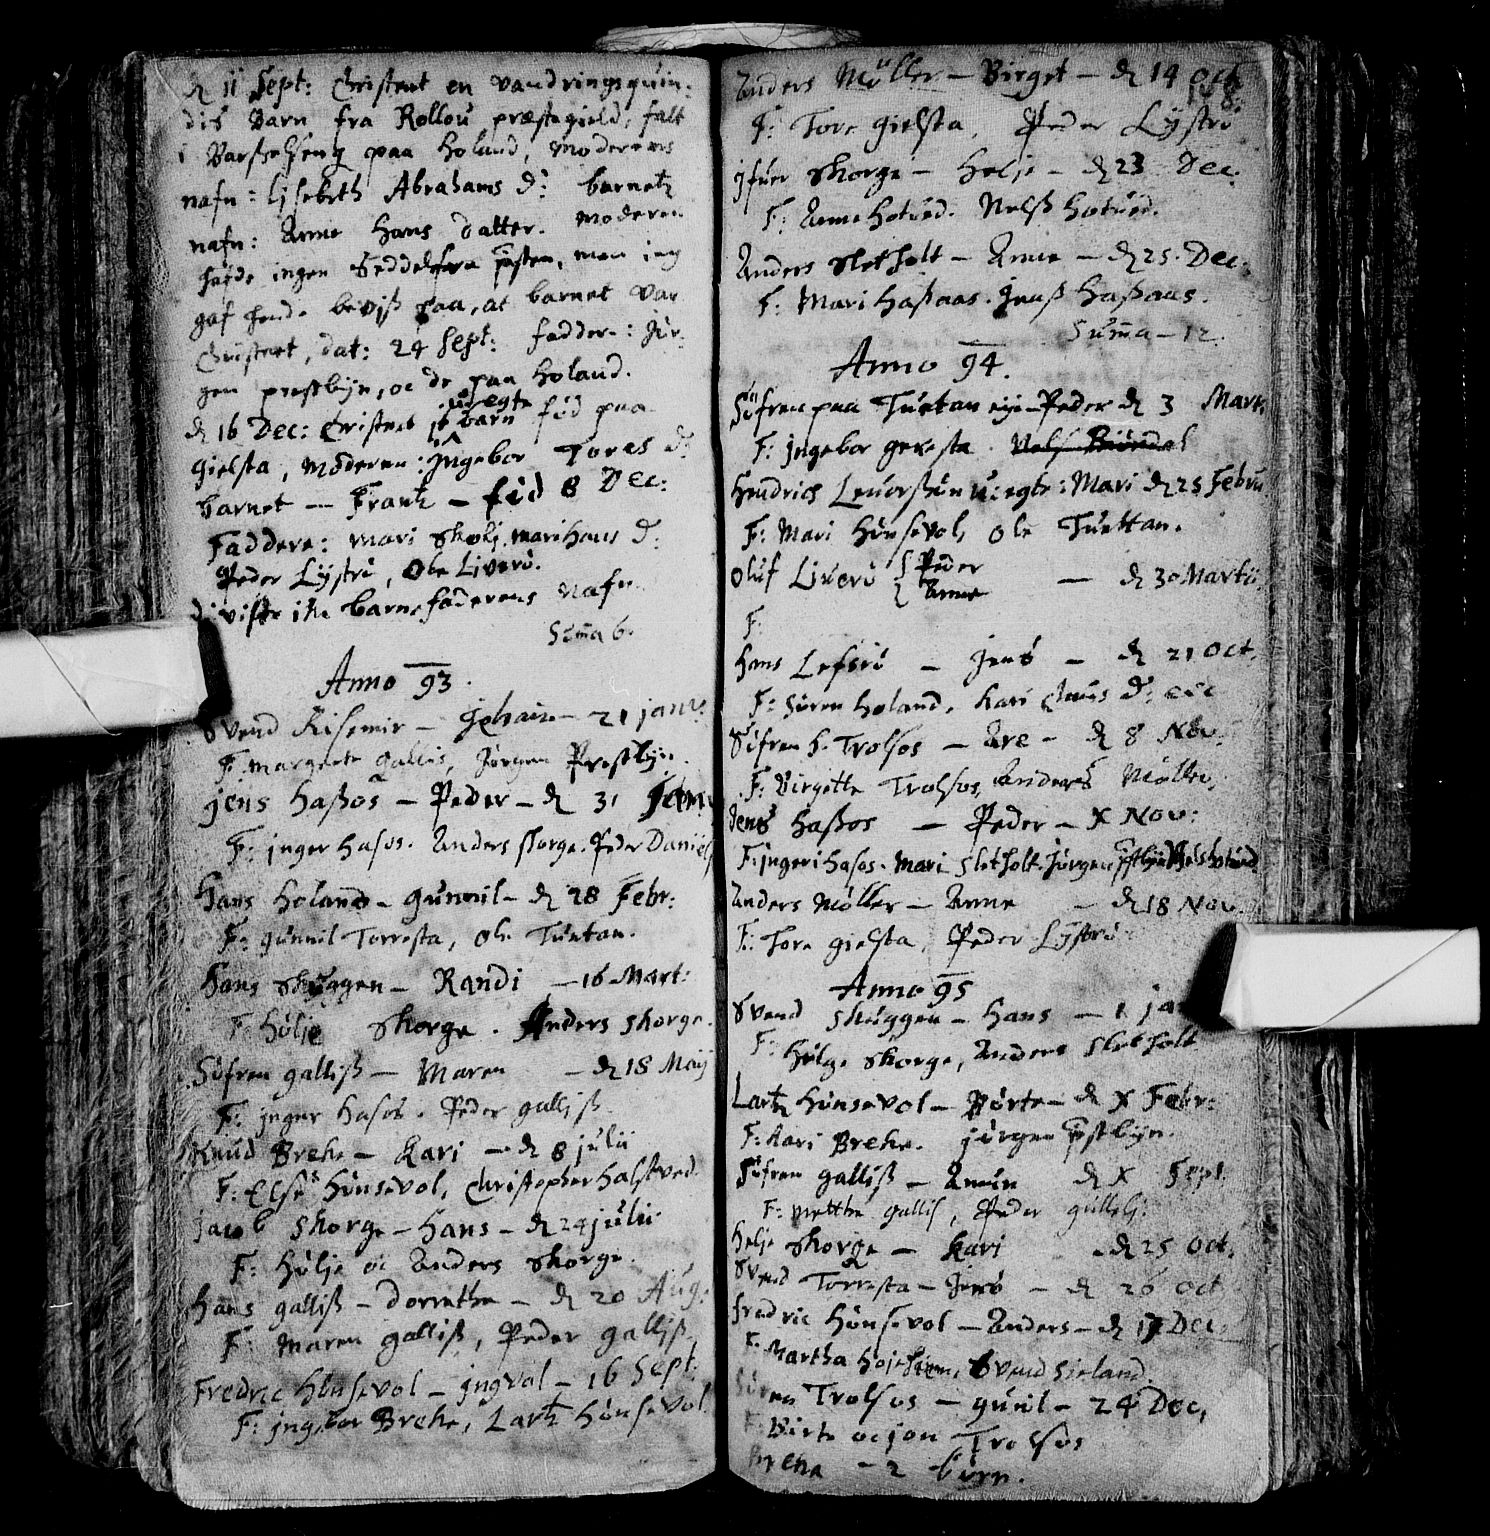 d 11 Sept: Christent en vandrings quin:
dis Barn fra Rollou præstegield, falt
i Barselseng paa Holand, moderens
nafn: Lisebeth Abrahams d: barnetz
nafn: Anne Hans datter. moderen
hafde ingen Seddel fra pstn, men jeg
gaf hende beviss paa, at barnet var
Christent, dat: 24 Sept: faddere: Jør-
gen prestbyn, oc de paa Holand.
d 16 Dec: Christent it uægte barn fød paa
Gielsta, Moderen: Ingebor Tores d:
barnet — Frantz — fød 8 Dec:
Faddere: mari Skoli, mari Hans d:
Peder Lystrü, Ole Liverü.
di viste ike barnefaderens nafn.
Summa 6.
Anno 93.
Svend Risemir — — 21 janu:
F: margrete gallis, Jørgen Prestbyn.
jens Hassos — Peder — d 31 jan
F: inger Hasos. Anders skorge. Peder Daniels
Hans Holand — Gunnil — d 28 Febr:
F: gunnil Torresta, Ole Tuetan.
Hans Skuggen — Randi — 16 Mart:
F: Hølje Skorge. Anders Skorge.
Søfren galliss — Maren — d 18 Maij
F: jnger Hasos. Peder galliss
Knud Breke — Kari — d 8 julii
F: Else Hunsevol, Christopher Halstved.
Jacob Skorge — Hans — d 24 julii
F: Hølje oc Anders Skorge.
Hans galliss — Dorrethe — d 20 Aug:
F: Maren galliss, Peder galliss
Fredric Hunsevol — jngval — 16 Sept:
F: jngebor Breke, Lartz Hunsevol
Anders Møller — Birget — d 14 Oct
148.
F: Tore Gielsta, Peder Lystrü
jfuer Skorge — Helje — d 23 Dec:
F: Anne Hotved. Nelss Hotved.
Anders Sletholt — Anne — d 25. Dec:
F: Mari Hassaas. Jenss Hassaas.
Summa — 12.
Anno 94.
Søfren paa Tuetan eje — Peder d 3 Mart:
F: jngebor geresta.
Hendrich Leuorssøn u: egte: Mari d 25 Febru
F: Mari Hunsevol, Ole Tuettan.
Oluf Liverü { Peder
Anne — d 30 Martii
F:
Hans Lefsrü — Jens — d 21 Oct.
F: Søren Holand, Kari Clauss d: etc
Søfren h. Trolsos — Are — d 8 Nov:
F: Birgette Trolsos, Anders Møller,
Jens Hassos — Peder — X Nov:
F: jngeri Hasos. Mari Sletholt. Jørgen pstbyn Nels Hotved
Anders Møller — Anne — d 18 Nov.
F: Tore gielsta, Peder Lystrü
Anno 95
Svend Skuggen — Hans — 1 ja
F: Hølge Skorge, Anders Sletholt
Lartz Hunsevol — Børte — d X Febr:
F: Kari Breke. jørgen pstbyn.
Søfren galliss — Amun d X Sept
F: Mette gallis, Peder gullelj.
Helje Skorge — Kari — d 25 Oct.
Svend Torresta — Jens — d 26 Oct
Fredric Hunsevol — Anders — d 17 Dec:
F: Martha Højehiem, Svend Sieland.
Søren Trolsos — gunil — 24 Dec,
F: Birte oc jon Trolsos
Breke — 2 børn.